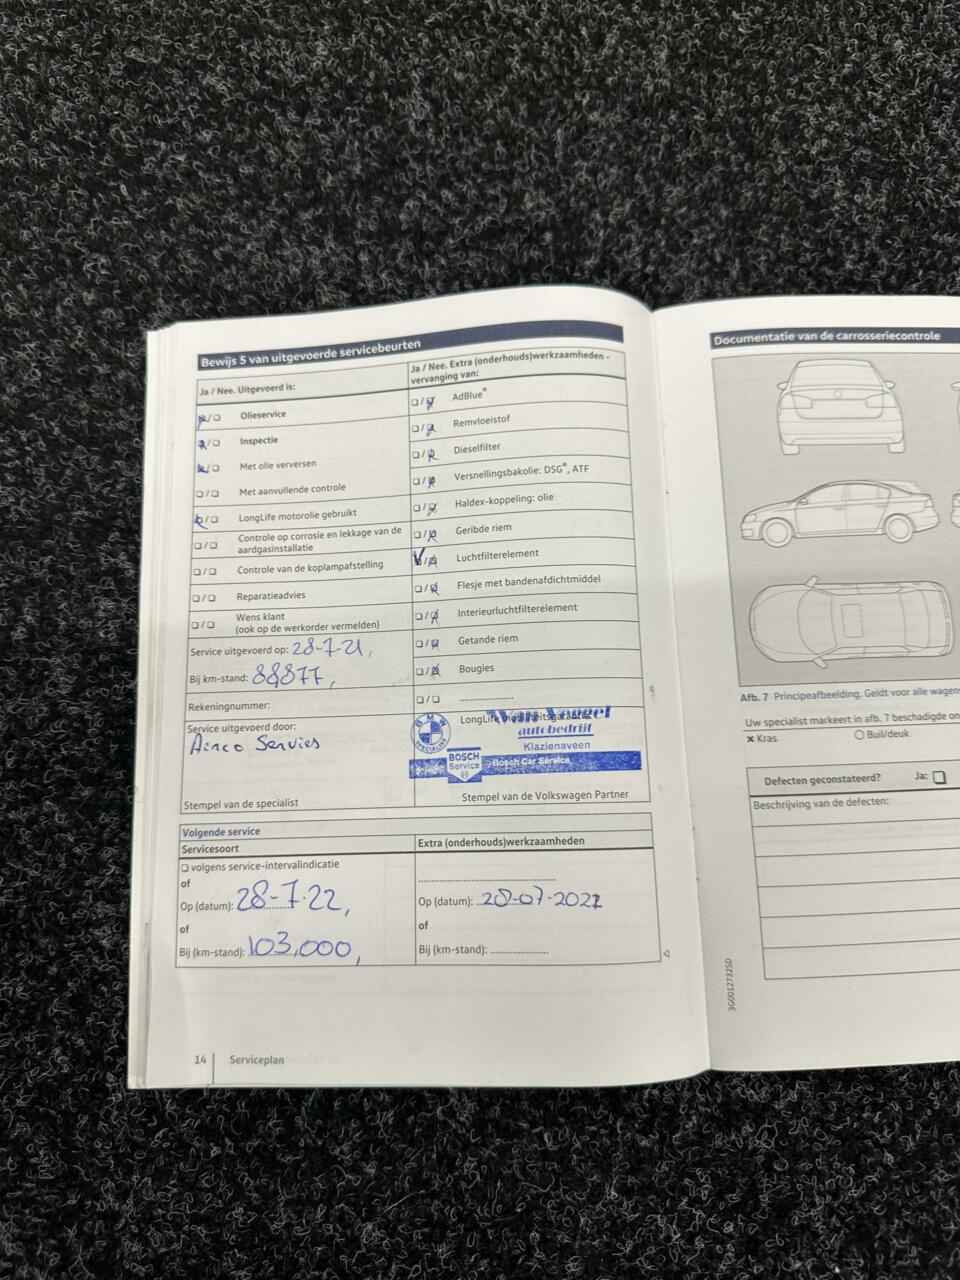 Bewijs 5 van uitgevoerde servicebeurten
Ja / Nee. Uitgevoerd is:
Olieservice
Inspectie
Met olie verversen
Met aanvullende controle
LongLife motorolie gebruikt
Controle op corrosie en lekkage van de
aardgasinstallatie
Controle van de koplampafstelling
Reparatieadvies
Wens klant
(ook op de werkorder vermelden)
Service uitgevoerd op: 28-7-21,
Bij km-stand: 88877,
Rekeningnummer:
Service uitgevoerd door:
Airco Servies
Stempel van de specialist
Ja / Nee. Extra (onderhouds)werkzaamheden -
vervanging van:
AdBlue®
Remvloeistof
Dieselfilter
Versnellingsbakolie: DSG®, ATF
Haldex-koppeling: olie
Geribde riem
Luchtfilterelement
Flesje met bandenafdichtmiddel
Interieurluchtfilterelement
Getande riem
Bougies
LongLife
BMW
SPECIALIST
autobedrijf
Klazienaveen
BOSCH
Service
Bosch Car Service
Stempel van de Volkswagen Partner
Volgende service
Servicesoort
volgens service-intervalindicatie
of
Op (datum): 28-7-22,
of
Bij (km-stand): 103,000,
Extra (onderhouds)werkzaamheden
Op (datum): 28-07-2022
of
Bij (km-stand):
14 Serviceplan
Documentatie van de carrosseriecontrole
Afb. 7 Principeafbeelding. Geldt voor alle
Uw specialist markeert in afb. 7 beschadigde
Kras
Buil/deuk
Defecten geconstateerd? Ja:
Beschrijving van de defecten:
3G0012732SD